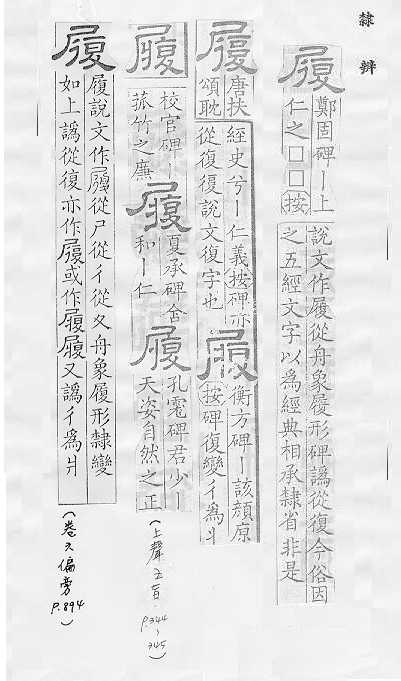 隸辨
履 鄭固碑丨上仁之□□按
說文作履從舟象履形碑譌從復今俗因之五經文字以為經典相承隸省非是
履 唐扶頌耽經史兮丨仁義按碑亦從復復說文復字也
履 衡方碑丨該顏原按碑復變彳為丬
履 校官碑丨菰竹之廉
履 夏承碑舍和丨仁
履 孔宙碑君少丨天姿自然之正
(上聲五旨. P.344~345)
履 履說文作履從尸從彳從夊舟象履形隸變
如上譌從復亦作履或作履履又譌彳為丬
(卷六偏旁 P.894)